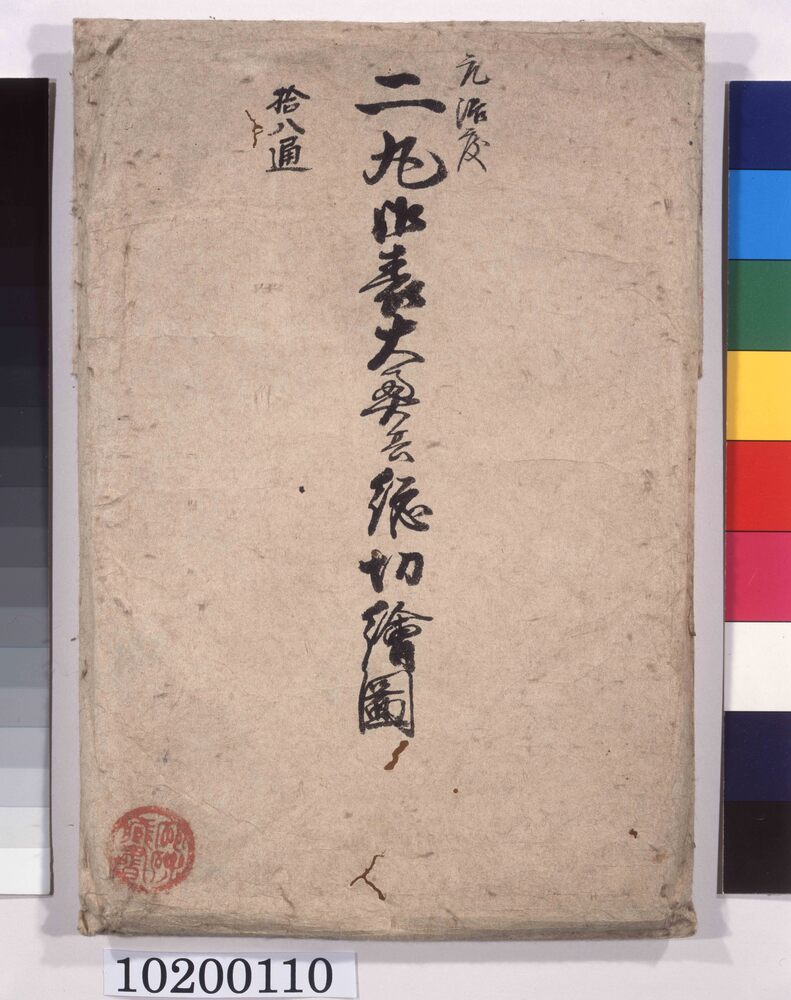 元治度
二丸御表大奥共総切繪圖
拾八通
10200110